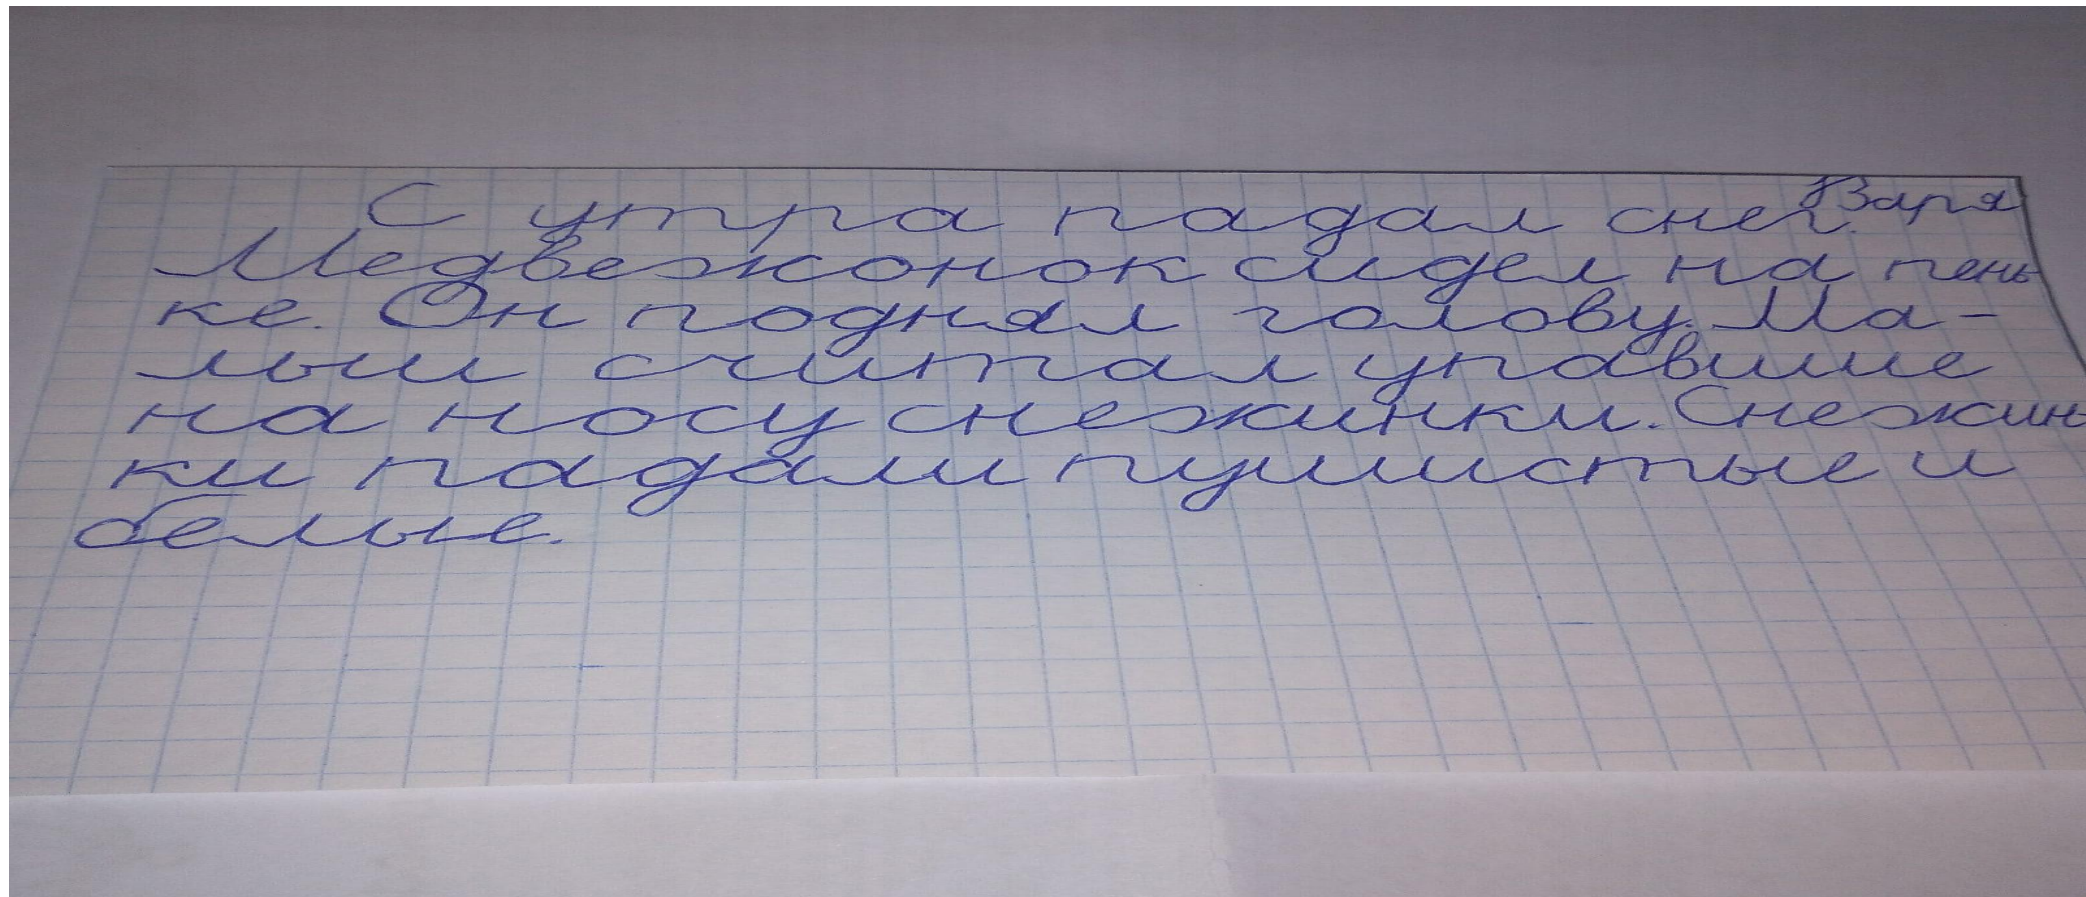 Варя
С утра падал снег.
Медвежонок сидел на пень
ке. Он поднял голову. Ма-
лыш считал упавшие
на носу снежинки. Снежин
ки падали пушистые и
белые.